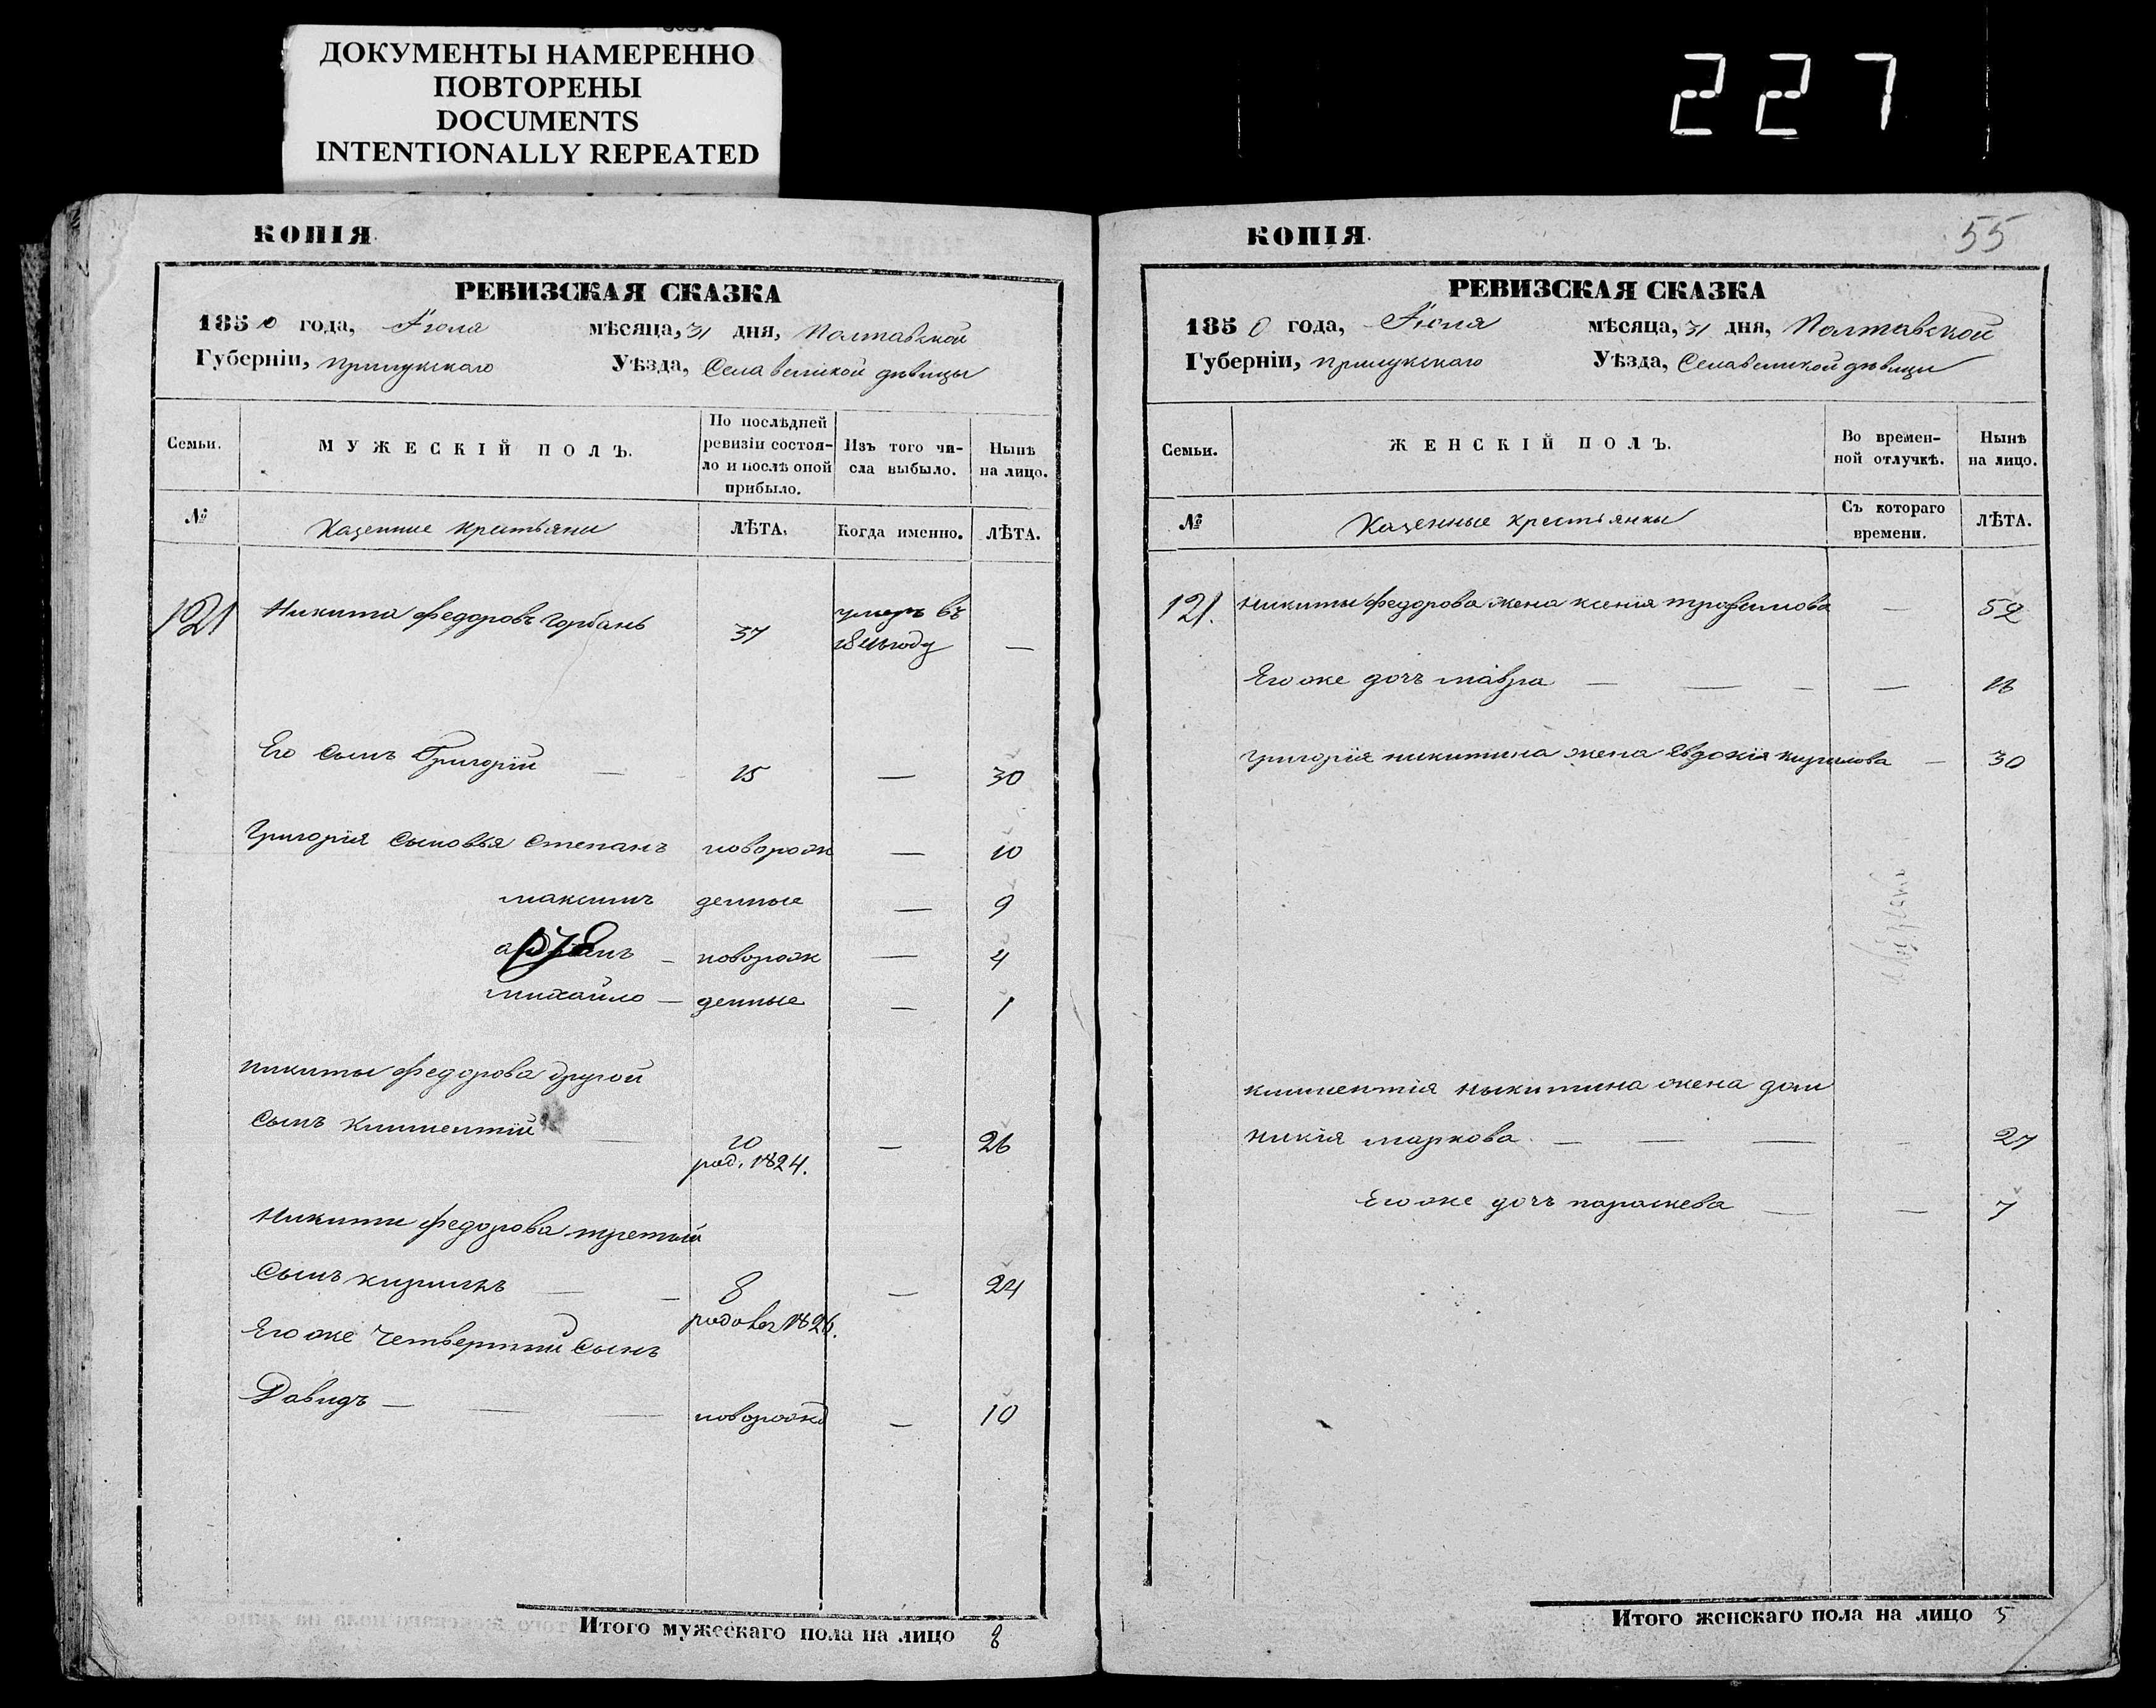 ДОКУМЕНТЫ НАМЕРЕННО
ПОВТОРЕНЫ
DOCUMENTS
INTENTIONALLY REPEATED
227
КОПІЯ.
РЕВИЗСКАЯ СКАЗКА
1850 года, Іюля мѣсяца, 31 дня, Полтавской
Губерніи, Прилукскаго Уѣзда, Села великой дѣвицы
Семьи. МУЖЕСКІЙ ПОЛЪ. По послѣдней ревизіи состоя-ло и послѣ оной прибыло. Изъ того чи-сла выбыло. Нынѣ на лицо.
№ Казенные крестьяни ЛѢТА. Когда именно. ЛѢТА.
121 Никита федоровъ Горбань 37 умеръ въ
году —
Его сынъ Григорій — 15 — 30
Григорія сыновья Степанъ поворожн — 10
максимъ денные — 9
— новорож — 4
михайло — денные — 1
никиты федорова другой
сынъ климентій — 10 — 26
род. 1824.
Никити федорова третій
сынъ кирилъ — — 8 — 24
1826.
Его же четвертий сынъ
Давидъ — — — новорожд — 10
Итого мужескаго пола на лицо 8
КОПІЯ. 55
РЕВИЗСКАЯ СКАЗКА
1850 года, Іюля мѣсяца, 31 дня, Полтавской
Губерніи, прилукскаго Уѣзда, Села великой дѣвици
Семьи. ЖЕНСКІЙ ПОЛЪ. Во времен-ной отлучкѣ. Нынѣ на лицо.
№ Казенные крестьянки Съ котораго времени. ЛѢТА.
121. Никиты федорова жена ксенія трофимова — 52
Его же дочь мавра — — — —
григорія никитина жена Явдокія кирилова — 30
климентія никитина жена дом
никія маркова. — — — — 27
Его же дочь параскева — — 7
Итого женскаго пола на лицо 5